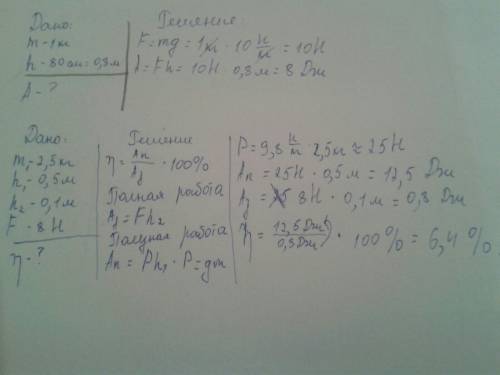 Дано:
m - 1 кг
h - 80 см = 0,8 м
A - ?
Решение:
F = mg = 1 кг · 10 Н/кг = 10 Н
A = Fh = 10 Н · 0,8 м = 8 Дж
Дано:
m - 2,5 кг
h₁ - 0,5 м
h₂ - 0,1 м
F - 8 Н
η - ?
Решение
η = Aп/Aз · 100%
Полная работа
Aз = Fh₂
Полезная работа
Aп = Ph₁ · P = gm
P = 9,8 Н/кг · 2,5 кг ≈ 25 Н
Aп = 25 Н · 0,5 м = 12,5 Дж
Aз = 8 Н · 0,1 м = 0,8 Дж
η = 12,5 Дж/0,8 Дж · 100% = 6,4 %